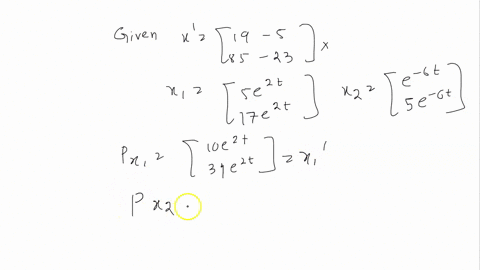 Given x' = [19 -5
85 -23] x
x₁ = [5e^2t
17e^2t] x₂ = [e^-6t
5e^-6t]
Px₁ = [10e^2t
34e^2t] = x₁'
P x₂